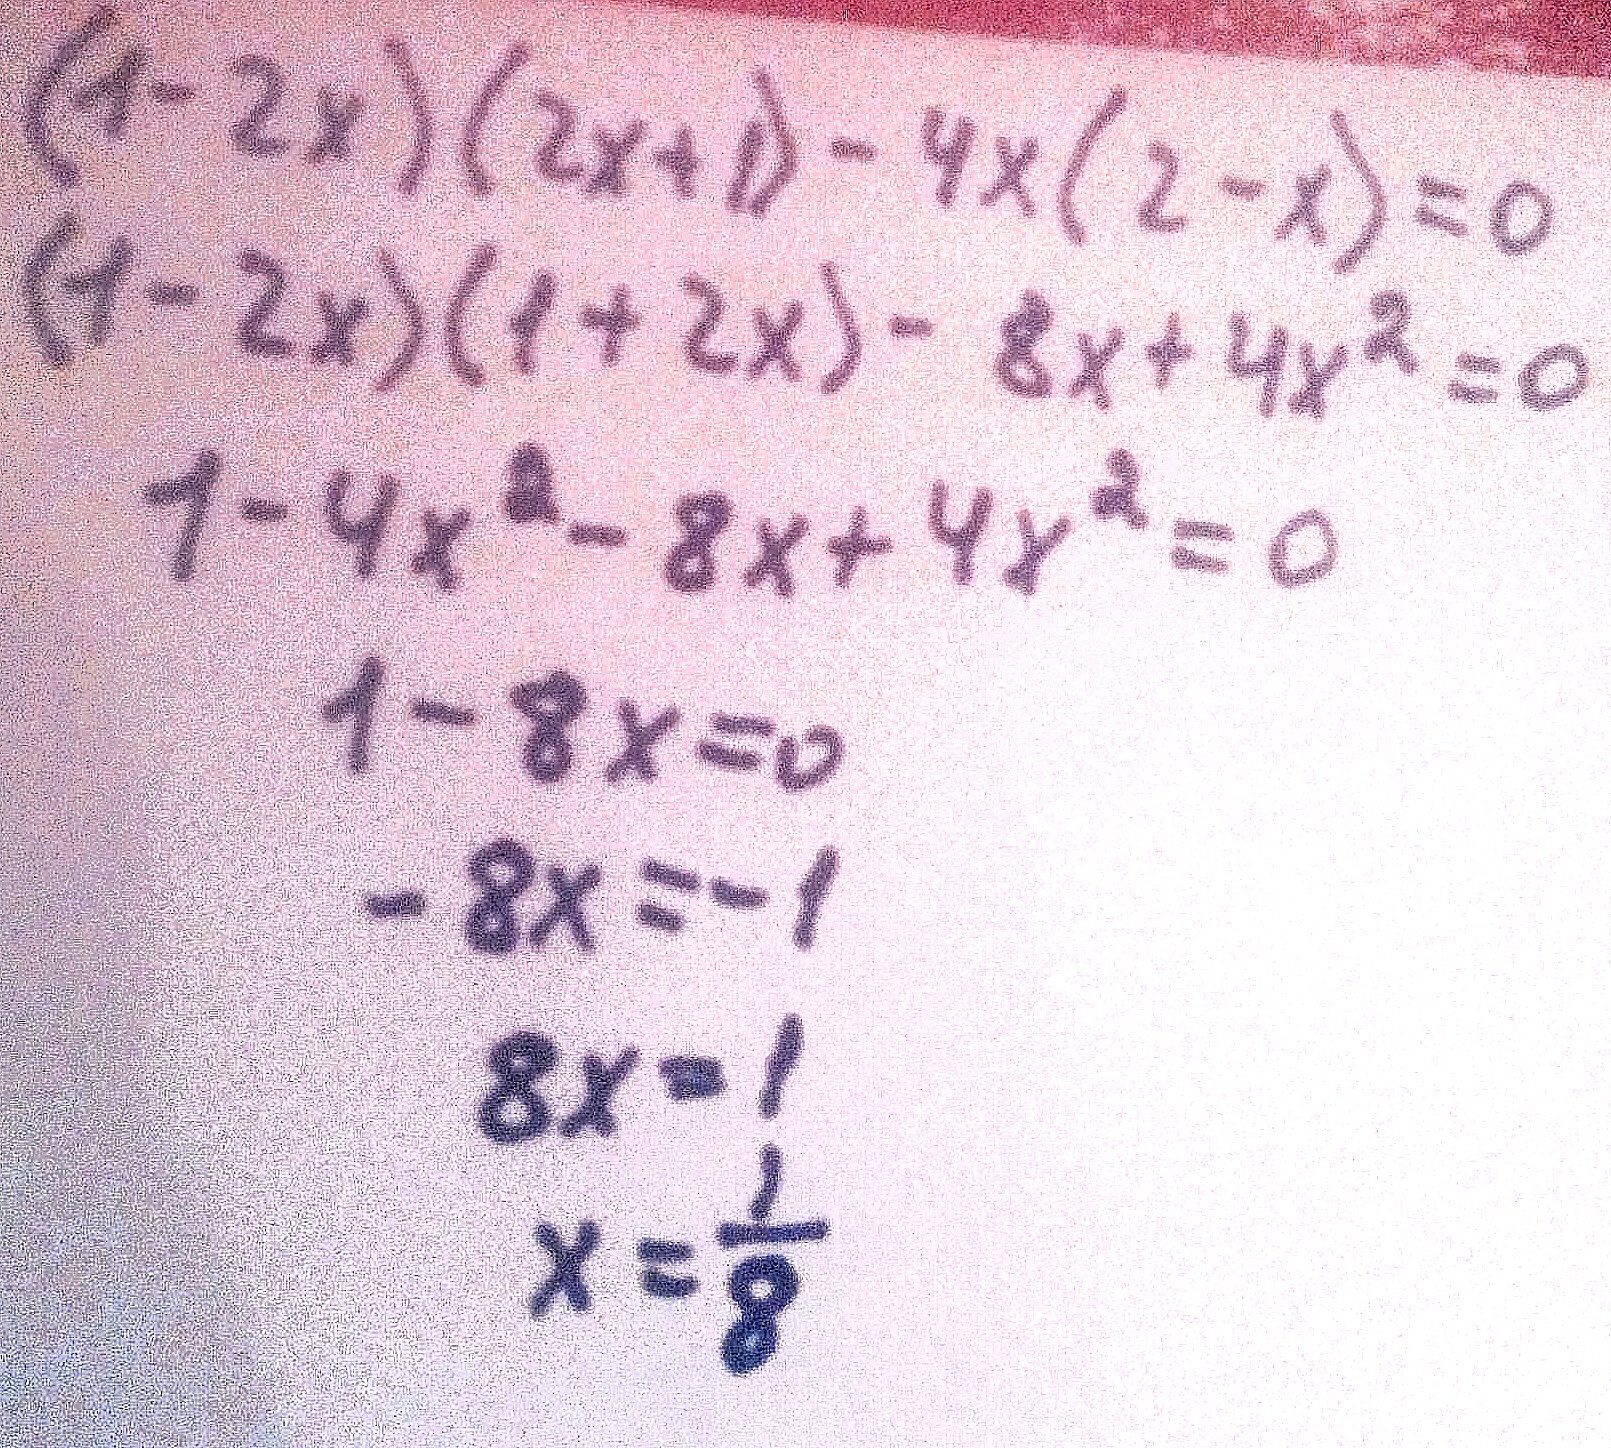 (1-2x)(2x+1)-4x(2-x)=0
(1-2x)(1+2x)-8x+4x²=0
1-4x²-8x+4x²=0
1-8x=0
-8x=-1
8x=1
x=1/8